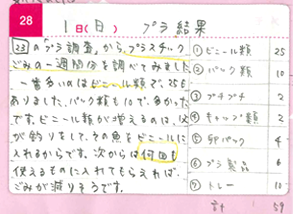 28
1日(日) プラ結果
23の「プラ調査」から、プラスチック
ごみの一週間分を調べてみました。
一番多いのはビニール類で、25も
ありました。パック類も10で、多かった
です。ビニール類が増えるのは、父
が釣りをして、その魚をビニールに
入れるからです。次からは何回も
使えるものに入れてもらえれば、
ごみが減りそうです。
①ビニール類 25
②パック類 10
③プチプチ 2
④キャップ類 2
⑤卵パック 4
⑥プラ製品 6
⑦トレー 10
計 59